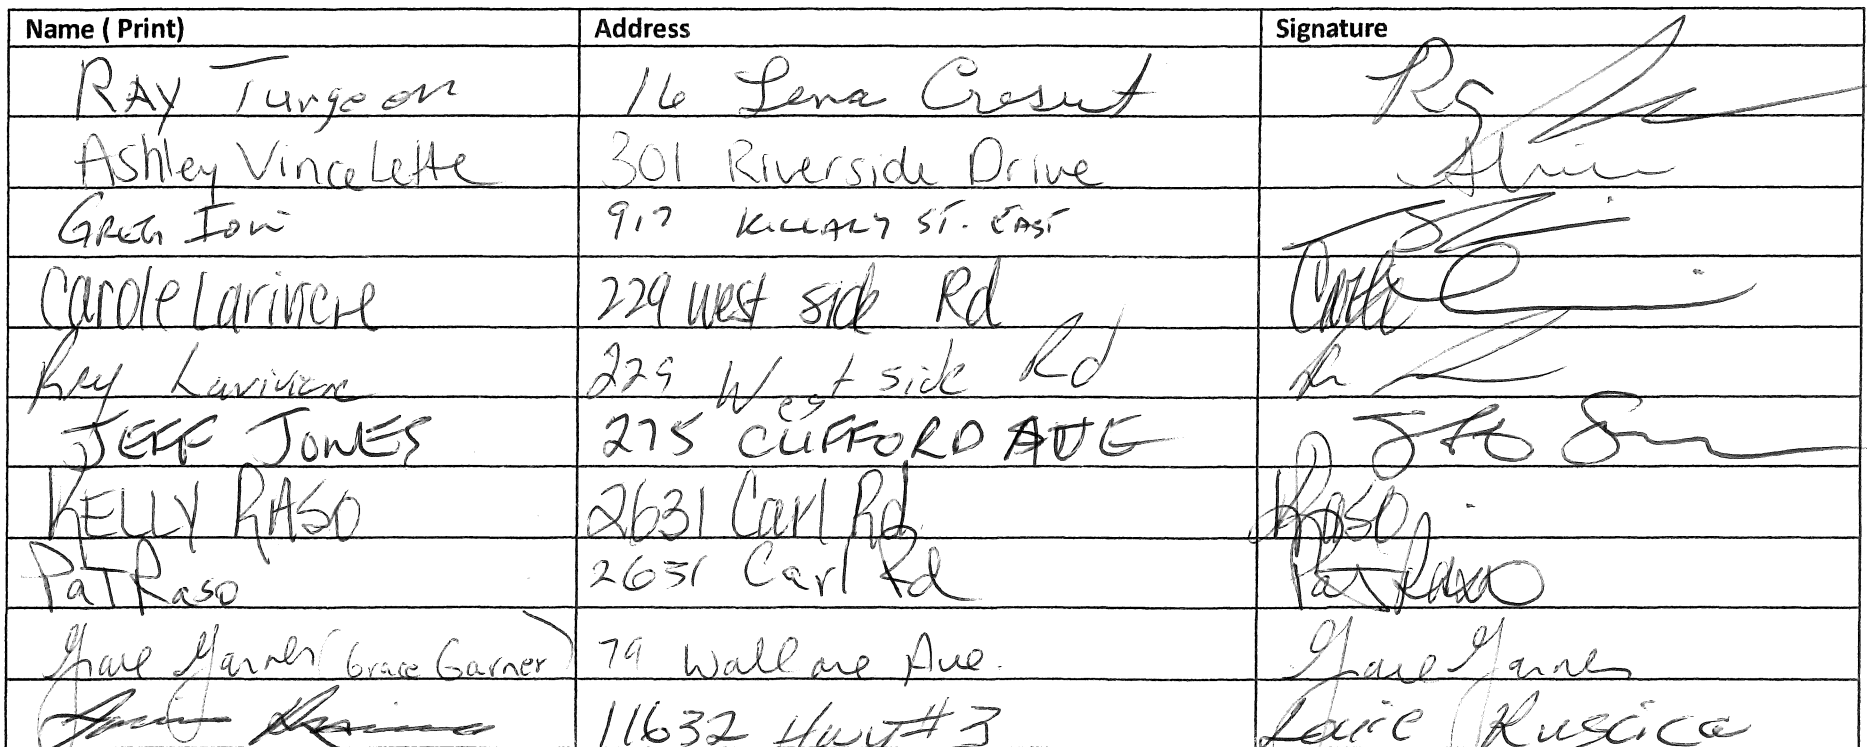 Name ( Print) Address Signature
RAY Turgeon 16 Lena Cresent
Ashley Vincelette 301 Riverside Drive
GREG 917 KILLALY ST. EAST
Carole Lariviere 229 west side Rd Carole
Ray Lariviere 229 West side Rd
JEFF JONES 275 CLIFFORD AVE
KELLY RASO 2631 Carl Rd KRaso
PaT Raso 2631 Carl Rd PaT Raso
Grace Garner (Grace Garner) 79 Wallace Ave. Grace Garner
11632 Hwy #3